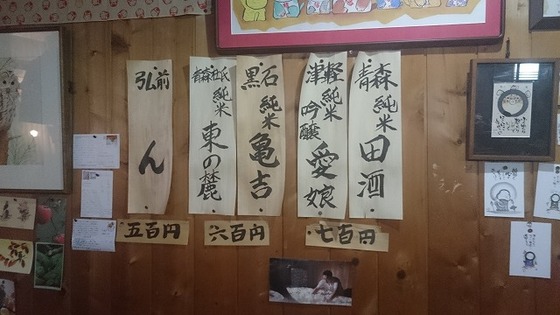 青森 純米 田酒
津軽 純米 吟醸 愛娘
黒石 純米 亀吉
青森杜氏 純米 東の麓
弘前 ん
七百円
六百円
五百円